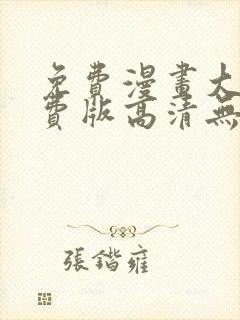 免費漫畫大
費版高清無
張鍇雍